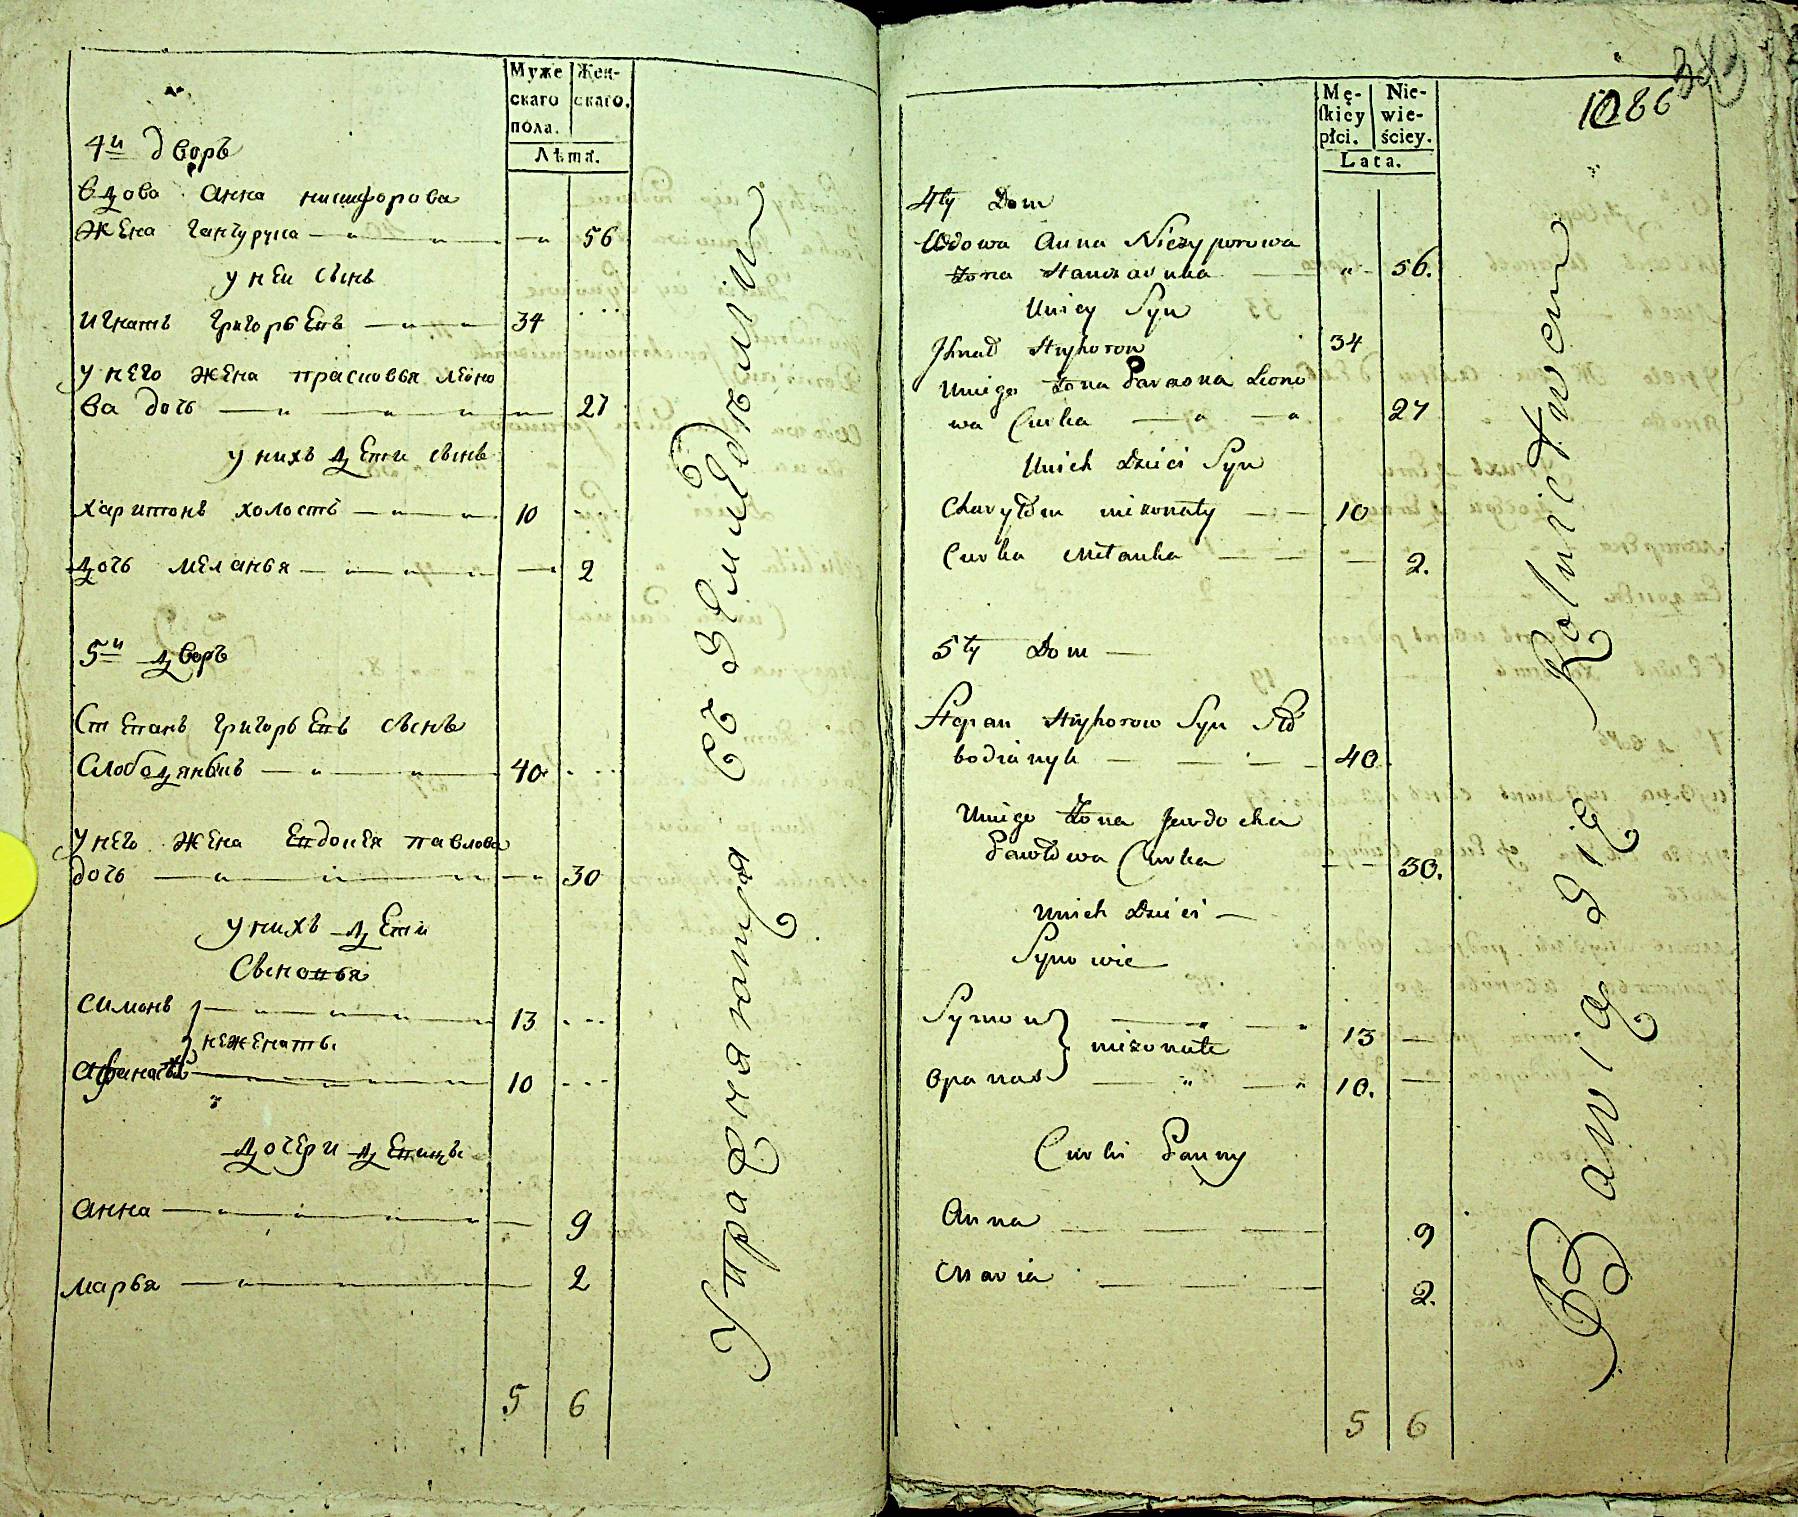 Муже
скаго
пола.
Жен-
скаго.
Лѣта.
4й дворъ
вдова анна никифорова
жена 56
у неи сынъ
игнатъ григорьевъ 34
у него жена прасковья леоно
ва дочь 27
у нихъ дѣти сынъ
харитонъ холостъ 10
дочь меланья 2
5й дворъ
Степанъ григорьевъ сынъ
слободяныкъ 40
у него жена евдокея павлова
дочь 30
у нихъ дѣти
сыновья
симонъ 13
неженаты.
афанасъ 10
дочери девицы
анна 9
марья 2
5 6
Упражняютця съ земледѣлии
343
1086
Mę-
skiey
płci.
Nie-
wie-
ściey.
Lata.
4ty Dom
Wdowa Anna Niczyporowa
żona „ 56.
Uniey Syn
Ihnat Hryhorow 34
Uniego żona Paraska Leono
wa Curka 27
Unich Dzieci Syn
Charyton niżonaty 10
Curka Melanka 2.
5ty Dom
Stepan Hryhorow Syn Sło
bodianyk 40
Uniego żona Jewdocha
Pawłowa Curka 30.
Unich Dzieci
Synowie
Symon 13
niżonate
Opanas 10.
Curki Panny
Anna 9
Maria 2.
5 6
Bawią się Rolnictwem